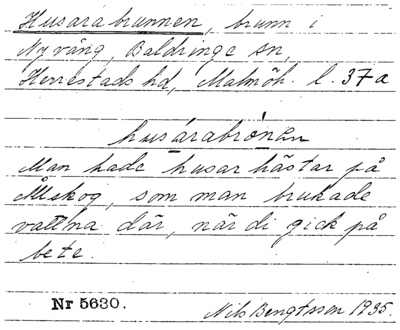 Husarabrunnen, brunn i
Nyvång, Baldringe sn,
Herrestads hd, Malmöh. l. 37a
husárabrònen
Man hade husarhästar på
Älskog, som man brukade
vattna där, när di gick på
bete.
Nr 5630.
Nils Bengtsson 1935.